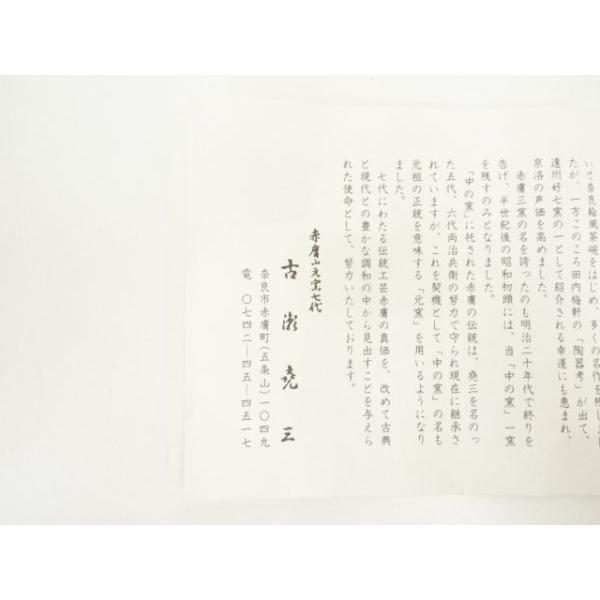 いて奈良絵風茶碗をはじめ、多くの名作を残し
たが、一方このころ田内梅軒の「陶器考」が出て、
遠州好七窯の一として紹介される幸運にも恵まれ、
京洛の声価を高めました。
赤膚三窯の名を誇ったのも明治二十年代で終りを
告げ、半世紀後の昭和初頭には、当「中の窯」一窯
を残すのみとなりました。
「中の窯」に托された赤膚の伝統は、堯三を名のっ
た五代、六代両治兵衛の努力で守られ現在に継承さ
れていますが、これを契機として「中の窯」の名も
元祖の正統を意味する「元窯」を用いるようになり
ました。
七代にわたる伝統工芸赤膚の真価を、改めて古典
と現代との豊かな調和の中から見出すことを与えら
れた使命として、努力いたしております。
赤膚山元窯七代
古瀬堯三
奈良市赤膚町(五条山)一〇四九
電 〇七四二―四五―四五一七